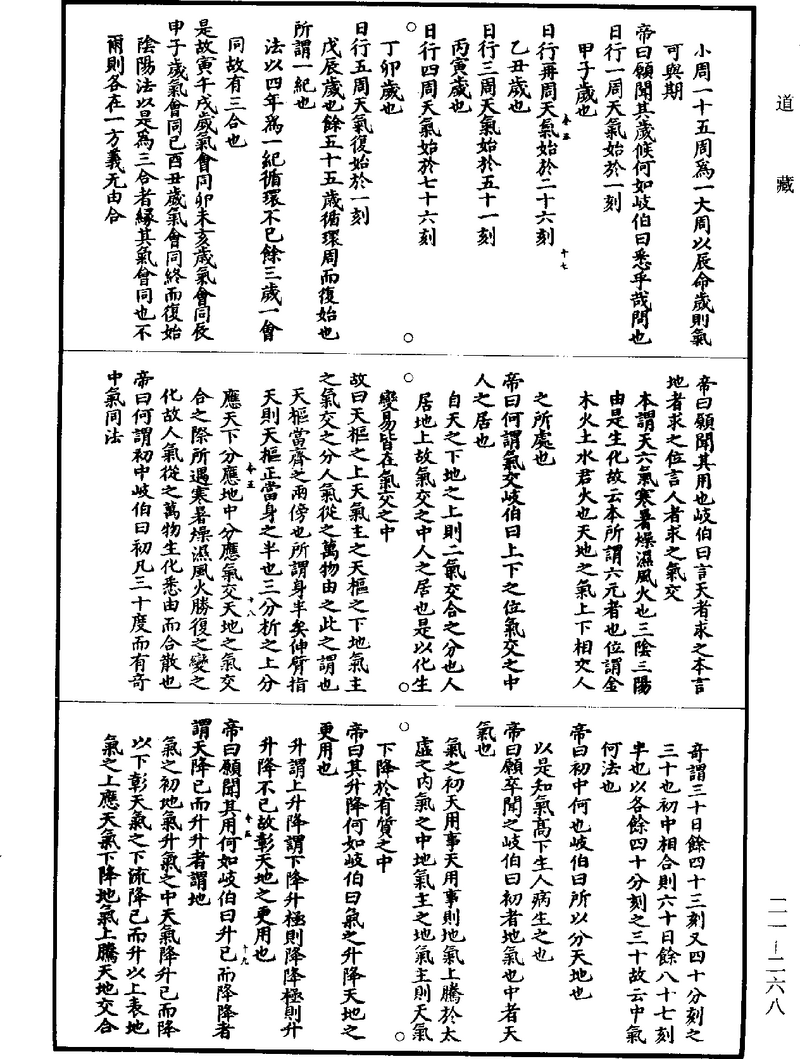 道藏
小周一十五周為一大周以辰命歲則氣
可與期
帝曰願聞其歲候何如岐伯曰悉乎哉問也
日行一周天氣始於一刻
甲子歲也
日行再周天氣始於二十六刻
乙丑歲也
日行三周天氣始於五十一刻
丙寅歲也
日行四周天氣始於七十六刻
丁卯歲也
日行五周天氣復始於一刻
戊辰歲也餘五十五歲循環周而復始也
所謂一紀也
法以四年為一紀循環不已餘三歲一會
同故有三合也
是故寅午戌歲氣會同卯未亥歲氣會同辰
申子歲氣會同巳酉丑歲氣會同終而復始
陰陽法以是為三合者緣其氣會同也不
爾則各在一方義无由合
卷五
十七
帝曰願聞其用也岐伯曰言天者求之本言
地者求之位言人者求之氣交
本謂天六氣寒暑燥濕風火也三陰三陽
由是生化故云本所謂六元者也位謂金
木火土水君火也天地之氣上下相交人
之所處也
帝曰何謂氣交岐伯曰上下之位氣交之中
人之居也
自天之下地之上則二氣交合之分也人
居地上故氣交之中人之居也是以化生
變易皆在氣交之中
故曰天樞之上天氣主之天樞之下地氣主
之氣交之分人氣從之萬物由之此之謂也
天樞當齊之兩傍也所謂身半矣伸臂指
天則天樞正當身之半也三分析之上分
應天下分應地中分應氣交天地之氣交
合之際所遇寒暑燥濕風火勝復之變之
化故人氣從之萬物生化悉由而合散也
帝曰何謂初中岐伯曰初凡三十度而有奇
中氣同法
卷五
十八
奇謂三十日餘四十三刻又四十分刻之
三十也初中相合則六十日餘八十七刻
半也以各餘四十分刻之三十故云中氣
同法也
帝曰初中何也岐伯曰所以分天地也
以是知氣高下生人病生之也
帝曰願卒聞之岐伯曰初者地氣也中者天
氣也
氣之初天用事天用事則地氣上騰於太
虛之內氣之中地氣主之地氣主則天氣
下降於有質之中
帝曰其升降何如岐伯曰氣之升降天地之
更用也
升謂上升降謂下降升極則降降極則升
升降不已故彰天地之更用也
帝曰願聞其用何如岐伯曰升已而降降者
謂天降已而升升者謂地
氣之初地氣升氣之中天氣降升已而降
以下彰天氣之下流降已而升以上表地
氣之上應天氣下降地氣上騰天地交合
卷五
十九
二一-二六八